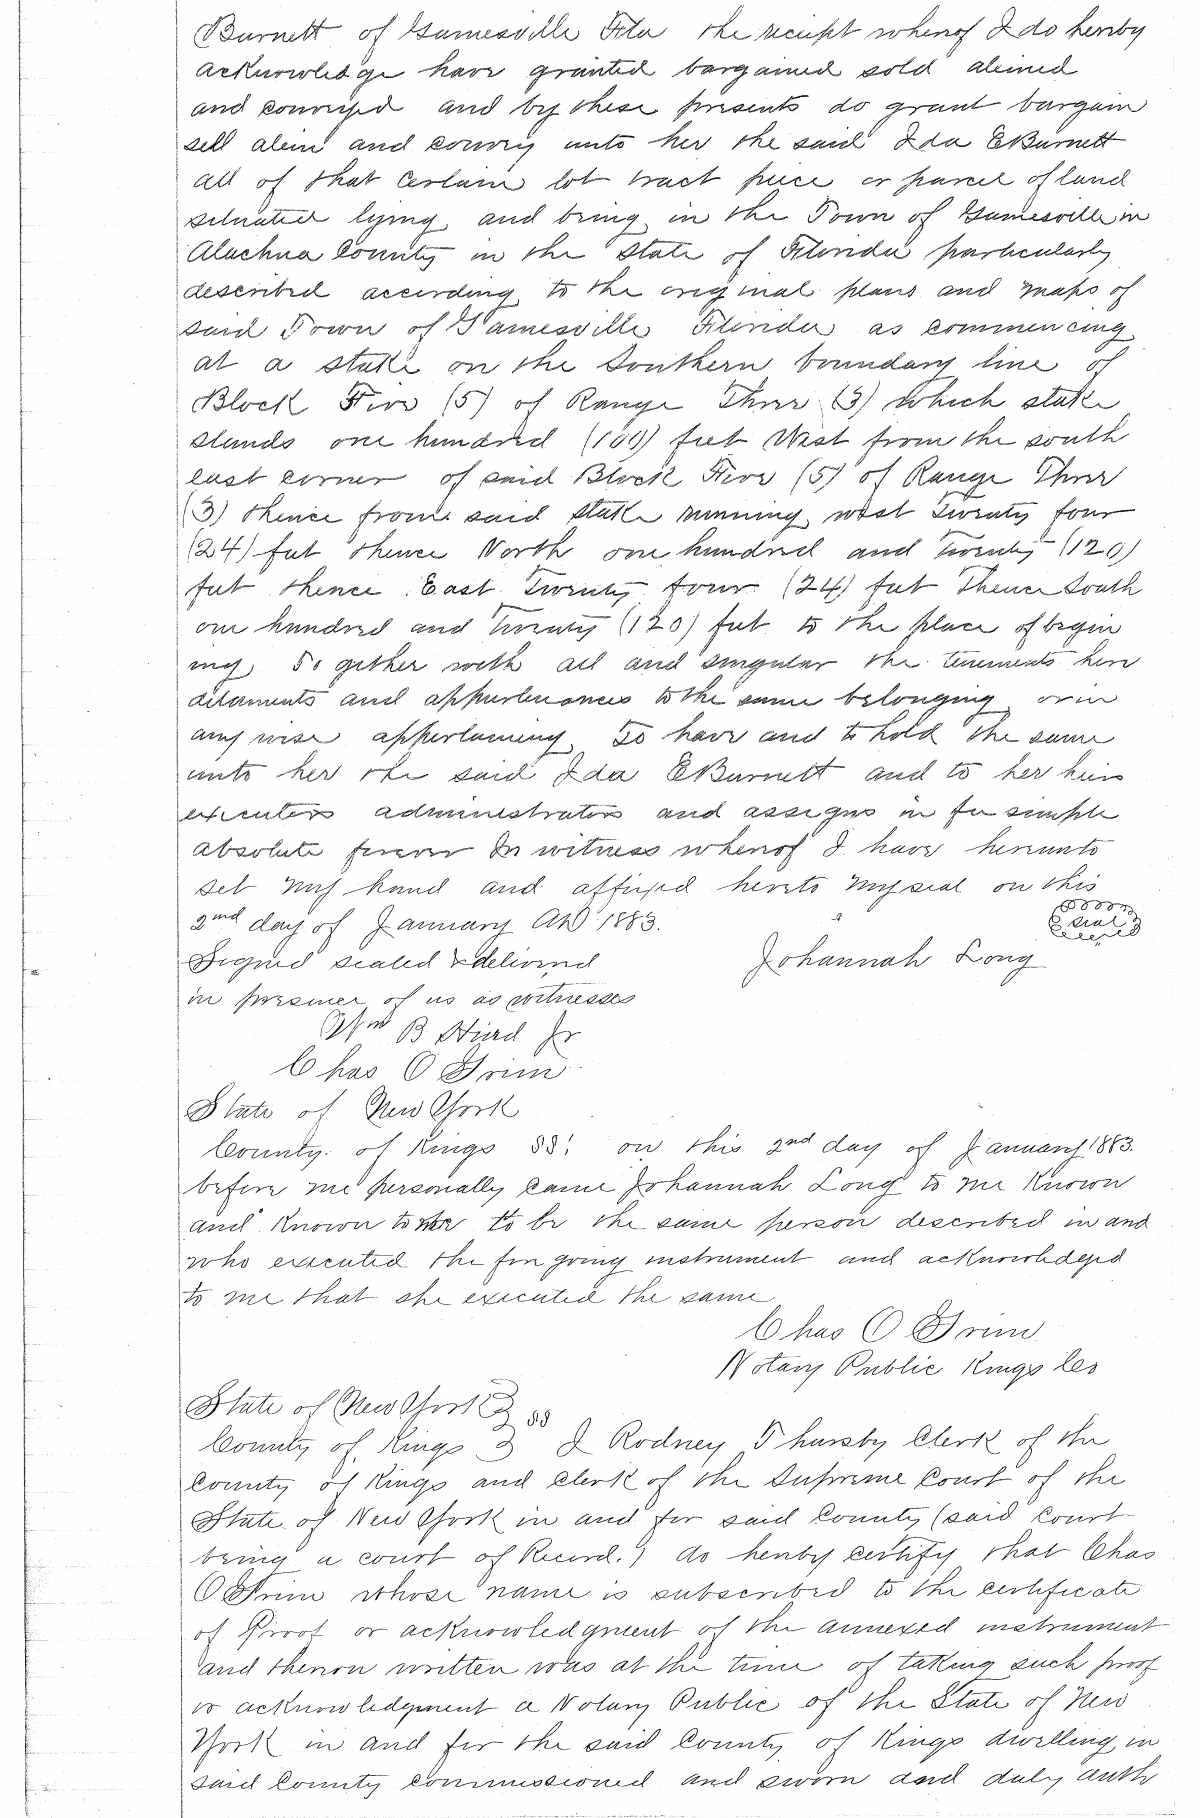 Burnett of Gainesville Fla the receipt whereof I do hereby
acknowledge have granted bargained sold aliened
and conveyed and by these presents do grant bargain
sell alein and convey unto her the said Ida E Burnett
all of that certain lot tract piece or parcel of land
situated lying and being in the Town of Gainesville in
Alachua County in the State of Florida particularly
described according to the original plans and maps of
said Town of Gainesville Florida as commencing
at a stake on the Southern boundary line of
Block Five (5) of Range Three (3) which stake
stands one hundred (100) feet West from the south
east corner of said Block Five (5) of Range Three
(3) thence from said stake running west Twenty four
(24) feet thence North one hundred and Twenty (120)
feet thence East Twenty four (24) feet Thence South
one hundred and Twenty (120) feet to the place of begin
ing Together with all and singular the tenements here
ditaments and appurtenances to the same belonging or in
any wise appertaining To have and to hold the same
unto her the said Ida E Burnett and to her heirs
executors administrators and assigns in fee simple
absolute forever In witness whereof I have hereunto
set my hand and affixed hereto my seal on this
2nd day of January AD 1883.
seal
Signed sealed & delivered
Johannah Long
in presence of us as witnesses
Wm B Hurd Jr
Chas O Grim
State of New York
County of Kings SS! on this 2nd day of January 1883.
before me personally came Johannah Long to me known
and known to me to be the same person described in and
who executed the foregoing instrument and acknowledged
to me that she executed the same
Chas O Grim
Notary Public Kings Co
State of New York } SS
County of Kings } I Rodney Thursby Clerk of the
County of Kings and Clerk of the Supreme Court of the
State of New York in and for said County (said Court
being a court of Record.) do hereby certify that Chas
O Grim whose name is subscribed to the certificate
of Proof or acknowledgment of the annexed instrument
and thereon written was at the time of taking such proof
or acknowledgment a Notary Public of the State of New
York in and for the said County of Kings dwelling in
said County commissioned and sworn and duly auth